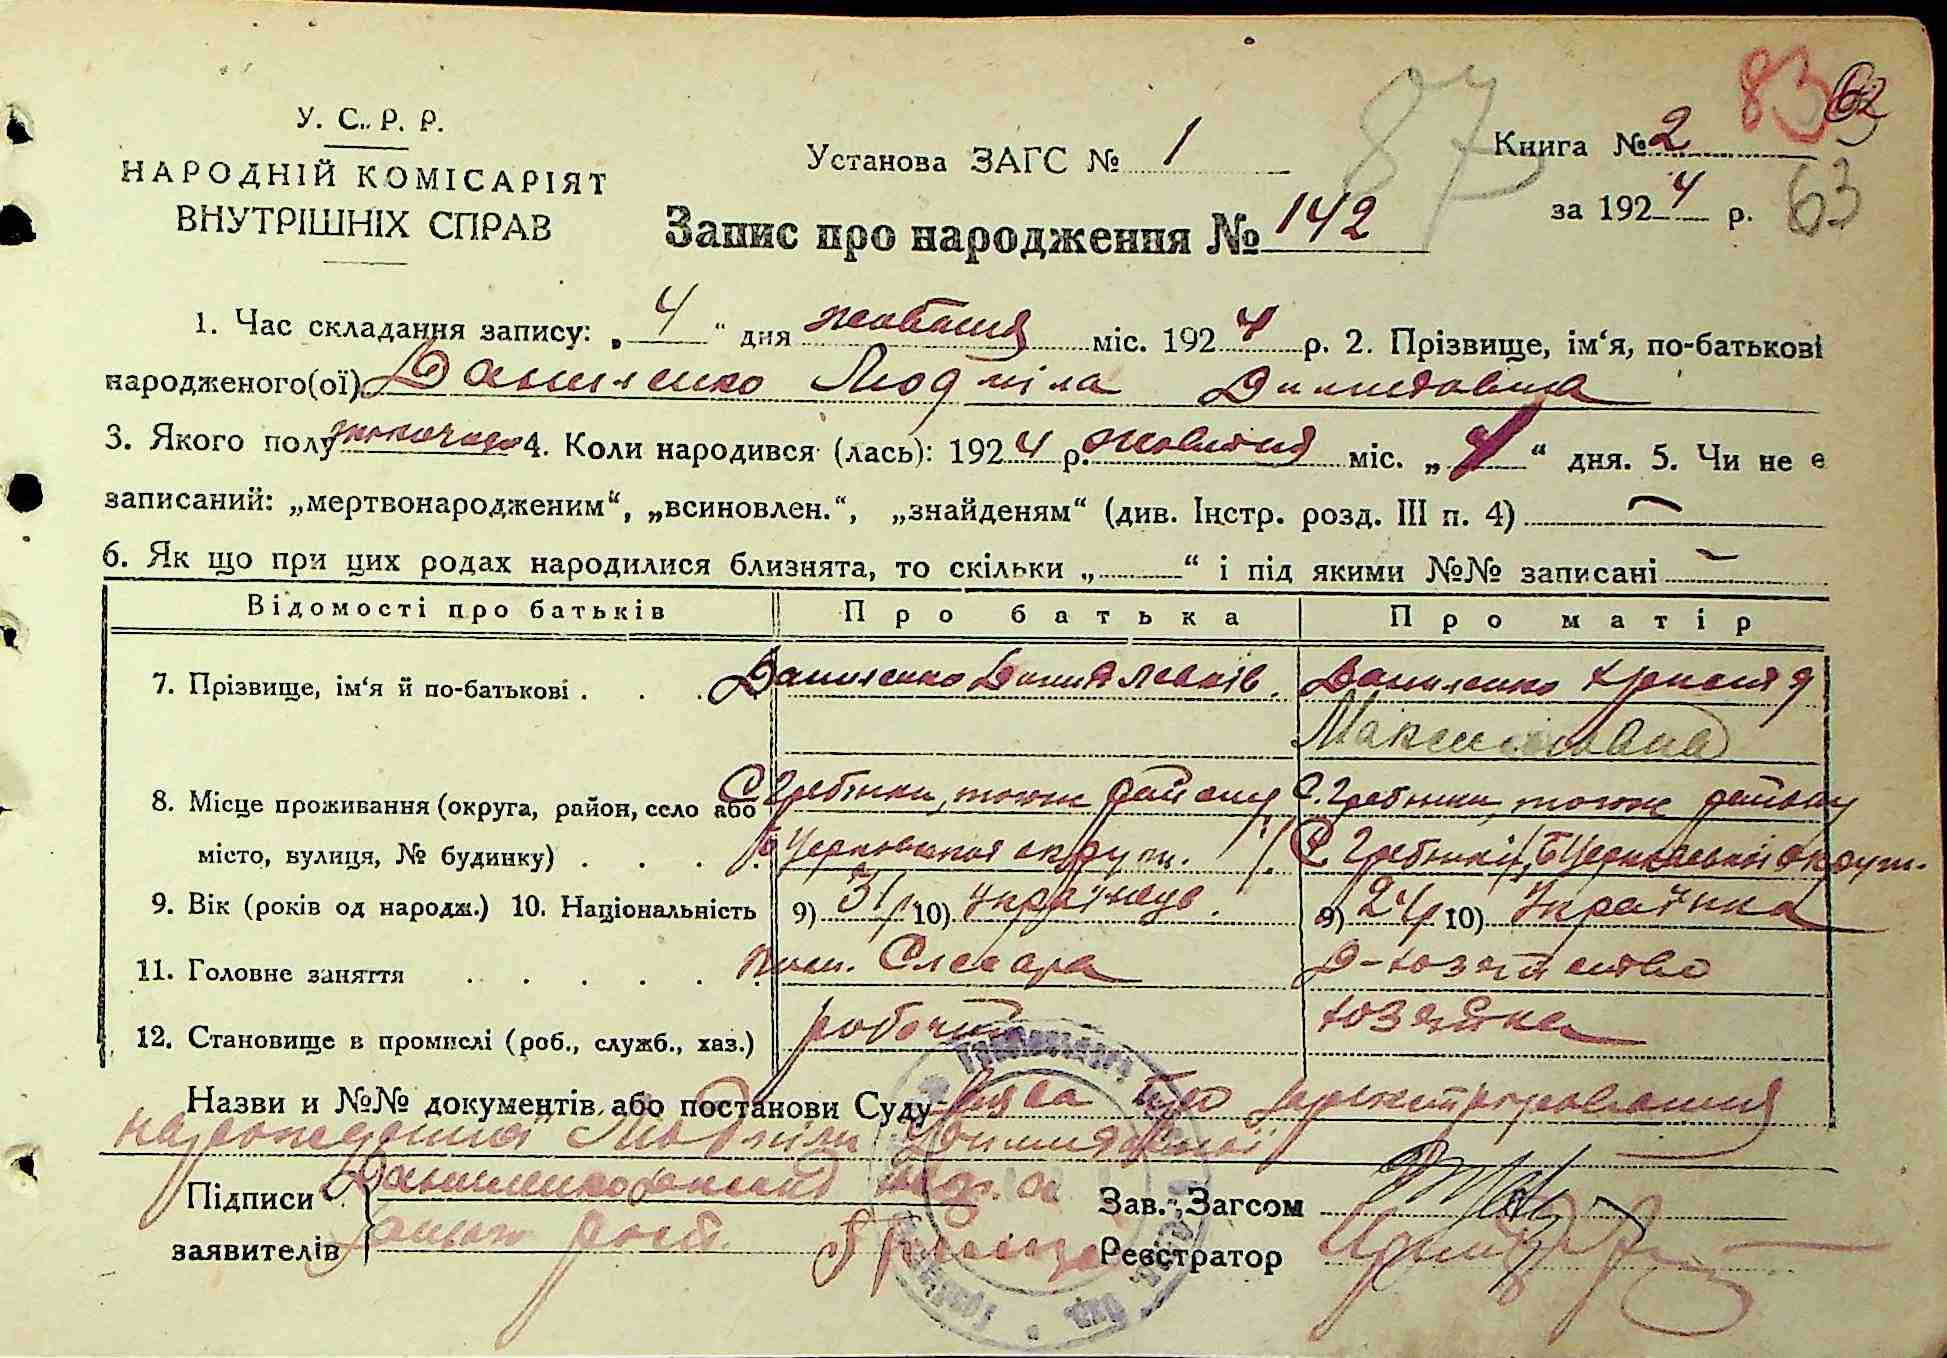 У. С. Р. Р.
НАРОДНІЙ КОМІСАРІЯТ
ВНУТРІШНІХ СПРАВ
Установа ЗАГС № 1
Книга № 2
83
62
87
63
за 1924 р.
Запис про народження № 142
1. Час складання запису: „4“ дня жовтня міс. 1924 р. 2. Прізвище, ім‘я, по-батькові
народженого(ої) Даниленко Людміла
3. Якого полу 4. Коли народився (лась): 1924 р. жовтня міс. „4“ дня. 5. Чи не е
записаний: „мертвонародженим“, „всиновлен.“, „знайденям“ (див. Інстр. розд. III п. 4) —
6. Як що при цих родах народилися близнята, то скільки „ “ і під якими №№ записані —
Відомості про батьків Про батька Про матір
7. Прізвище, ім‘я й по-батькові . . . Даниленко Даниленко
8. Місце проживання (округа, район, село або С. Гребінки, того ж району С. Гребінки, того ж району
місто, вулиця, № будинку) . . . Б Церковської округи. С. Гребінки, Б Церковської округи.
9. Вік (років од народж.) 10. Національність 9) 31 р 10) Українець. 9) 24 р 10) Українка
11. Головне заняття . . . . . . Слесаря Д-хозяйство
12. Становище в промислі (роб., служб., хаз.) робочий хозяйка
Назви и №№ документів або постанови Суду Заява про
Людміли
Підписи Даниленко
заявителів
Зав. Загсом
Реєстратор